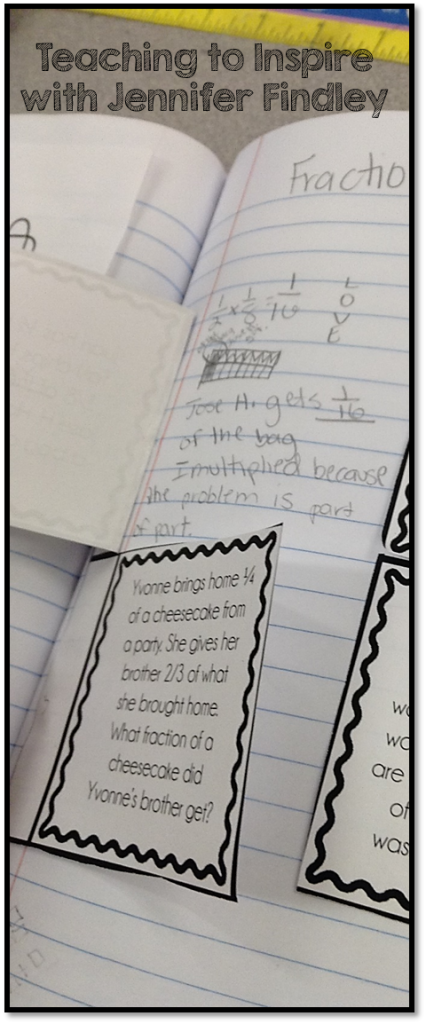 Teaching to Inspire
with Jennifer Findley
Fractio
1/2 x 1/8 = 1/16
L
O
V
E
Jose H. gets 1/16
of the bag
I multiplied because
the problem is part
of part.
Yvonne brings home ¼
of a cheesecake from
a party. She gives her
brother 2/3 of what
she brought home.
What fraction of a
cheesecake did
Yvonne's brother get?
wo
wo
are
of
was